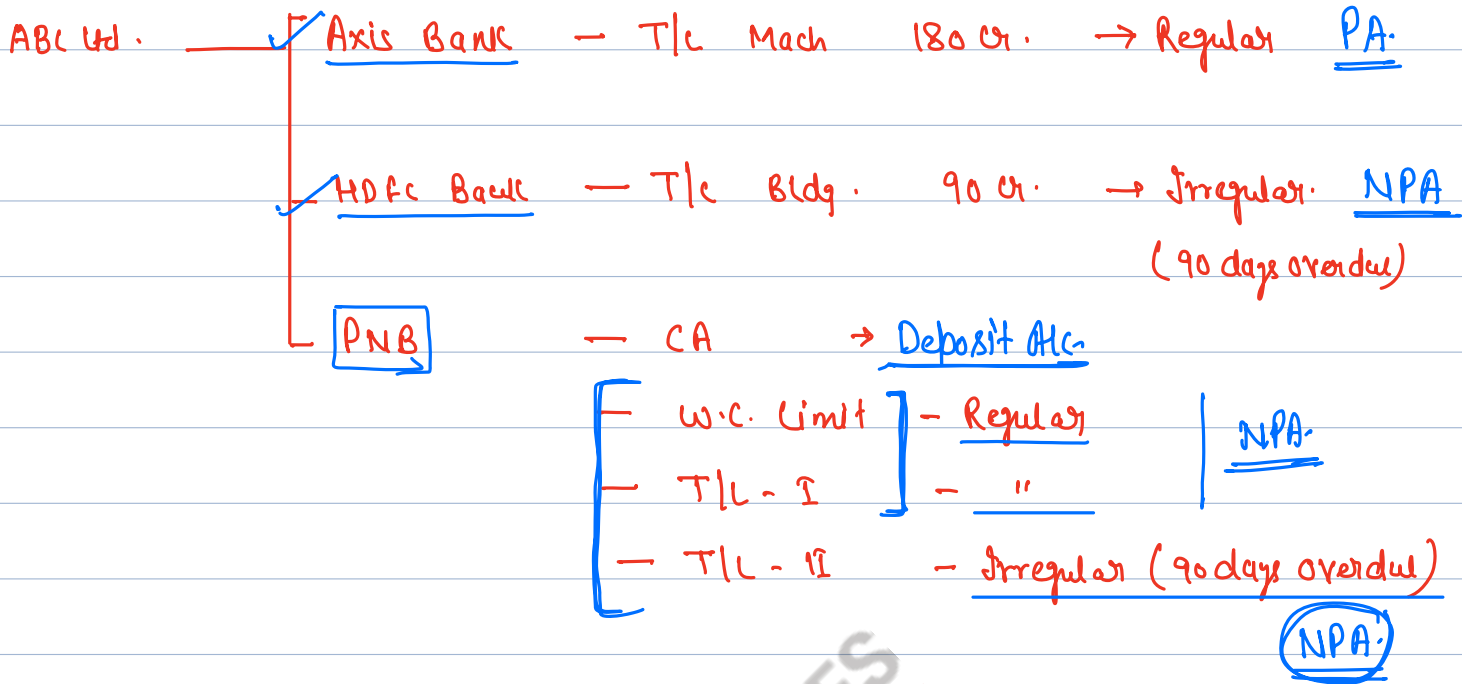 ABC Ltd. Axis Bank - T/L Mach 180 cr. → Regular PA.
HDFC Bank - T/L Bldg. 90 cr. → Irregular. NPA
(90 days overdue)
PNB - CA → Deposit A/c.
- W.C. Limit - Regular NPA.
- T/L - I - "
- T/L - II - Irregular (90 days overdue)
NPA.